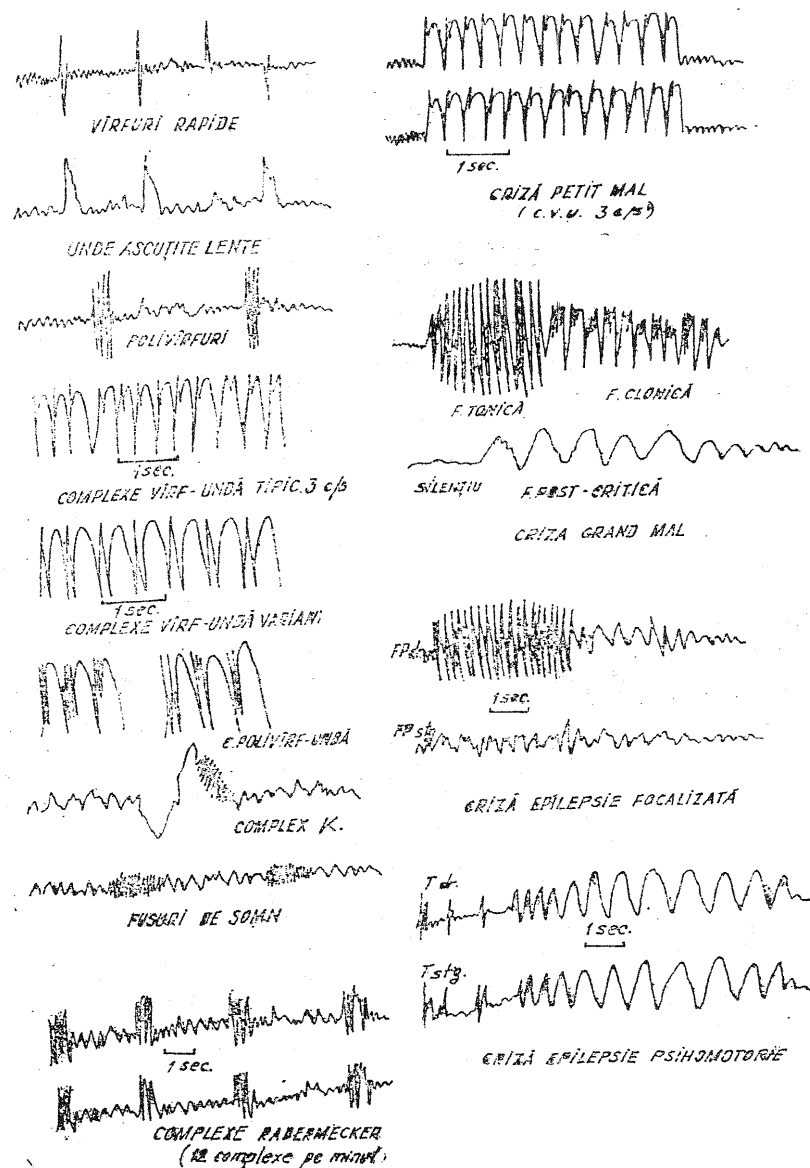 VÎRFURI RAPIDE
UNDE ASCUȚITE LENTE
POLIVÎRFURI
1 sec.
COMPLEXE VÎRF-UNDĂ TIPIC. 3 c/s
1 sec.
COMPLEXE VÎRF-UNDĂ VARIANT
C. POLIVÎRF-UNDĂ
COMPLEX K.
FUSURI DE SOMN
1 sec.
COMPLEXE RADERMECKER
(12 complexe pe minut)
1 sec.
CRIZĂ PETIT MAL
(c.v.u. 3 c/s)
F. TONICĂ
F. CLONICĂ
SILENȚIU
F. POST-CRITICĂ
CRIZA GRAND MAL
FP dr.
1 sec.
FP stg
CRIZĂ EPILEPSIE FOCALIZATĂ
T dr.
1 sec.
T stg.
CRIZĂ EPILEPSIE PSIHOMOTORIE